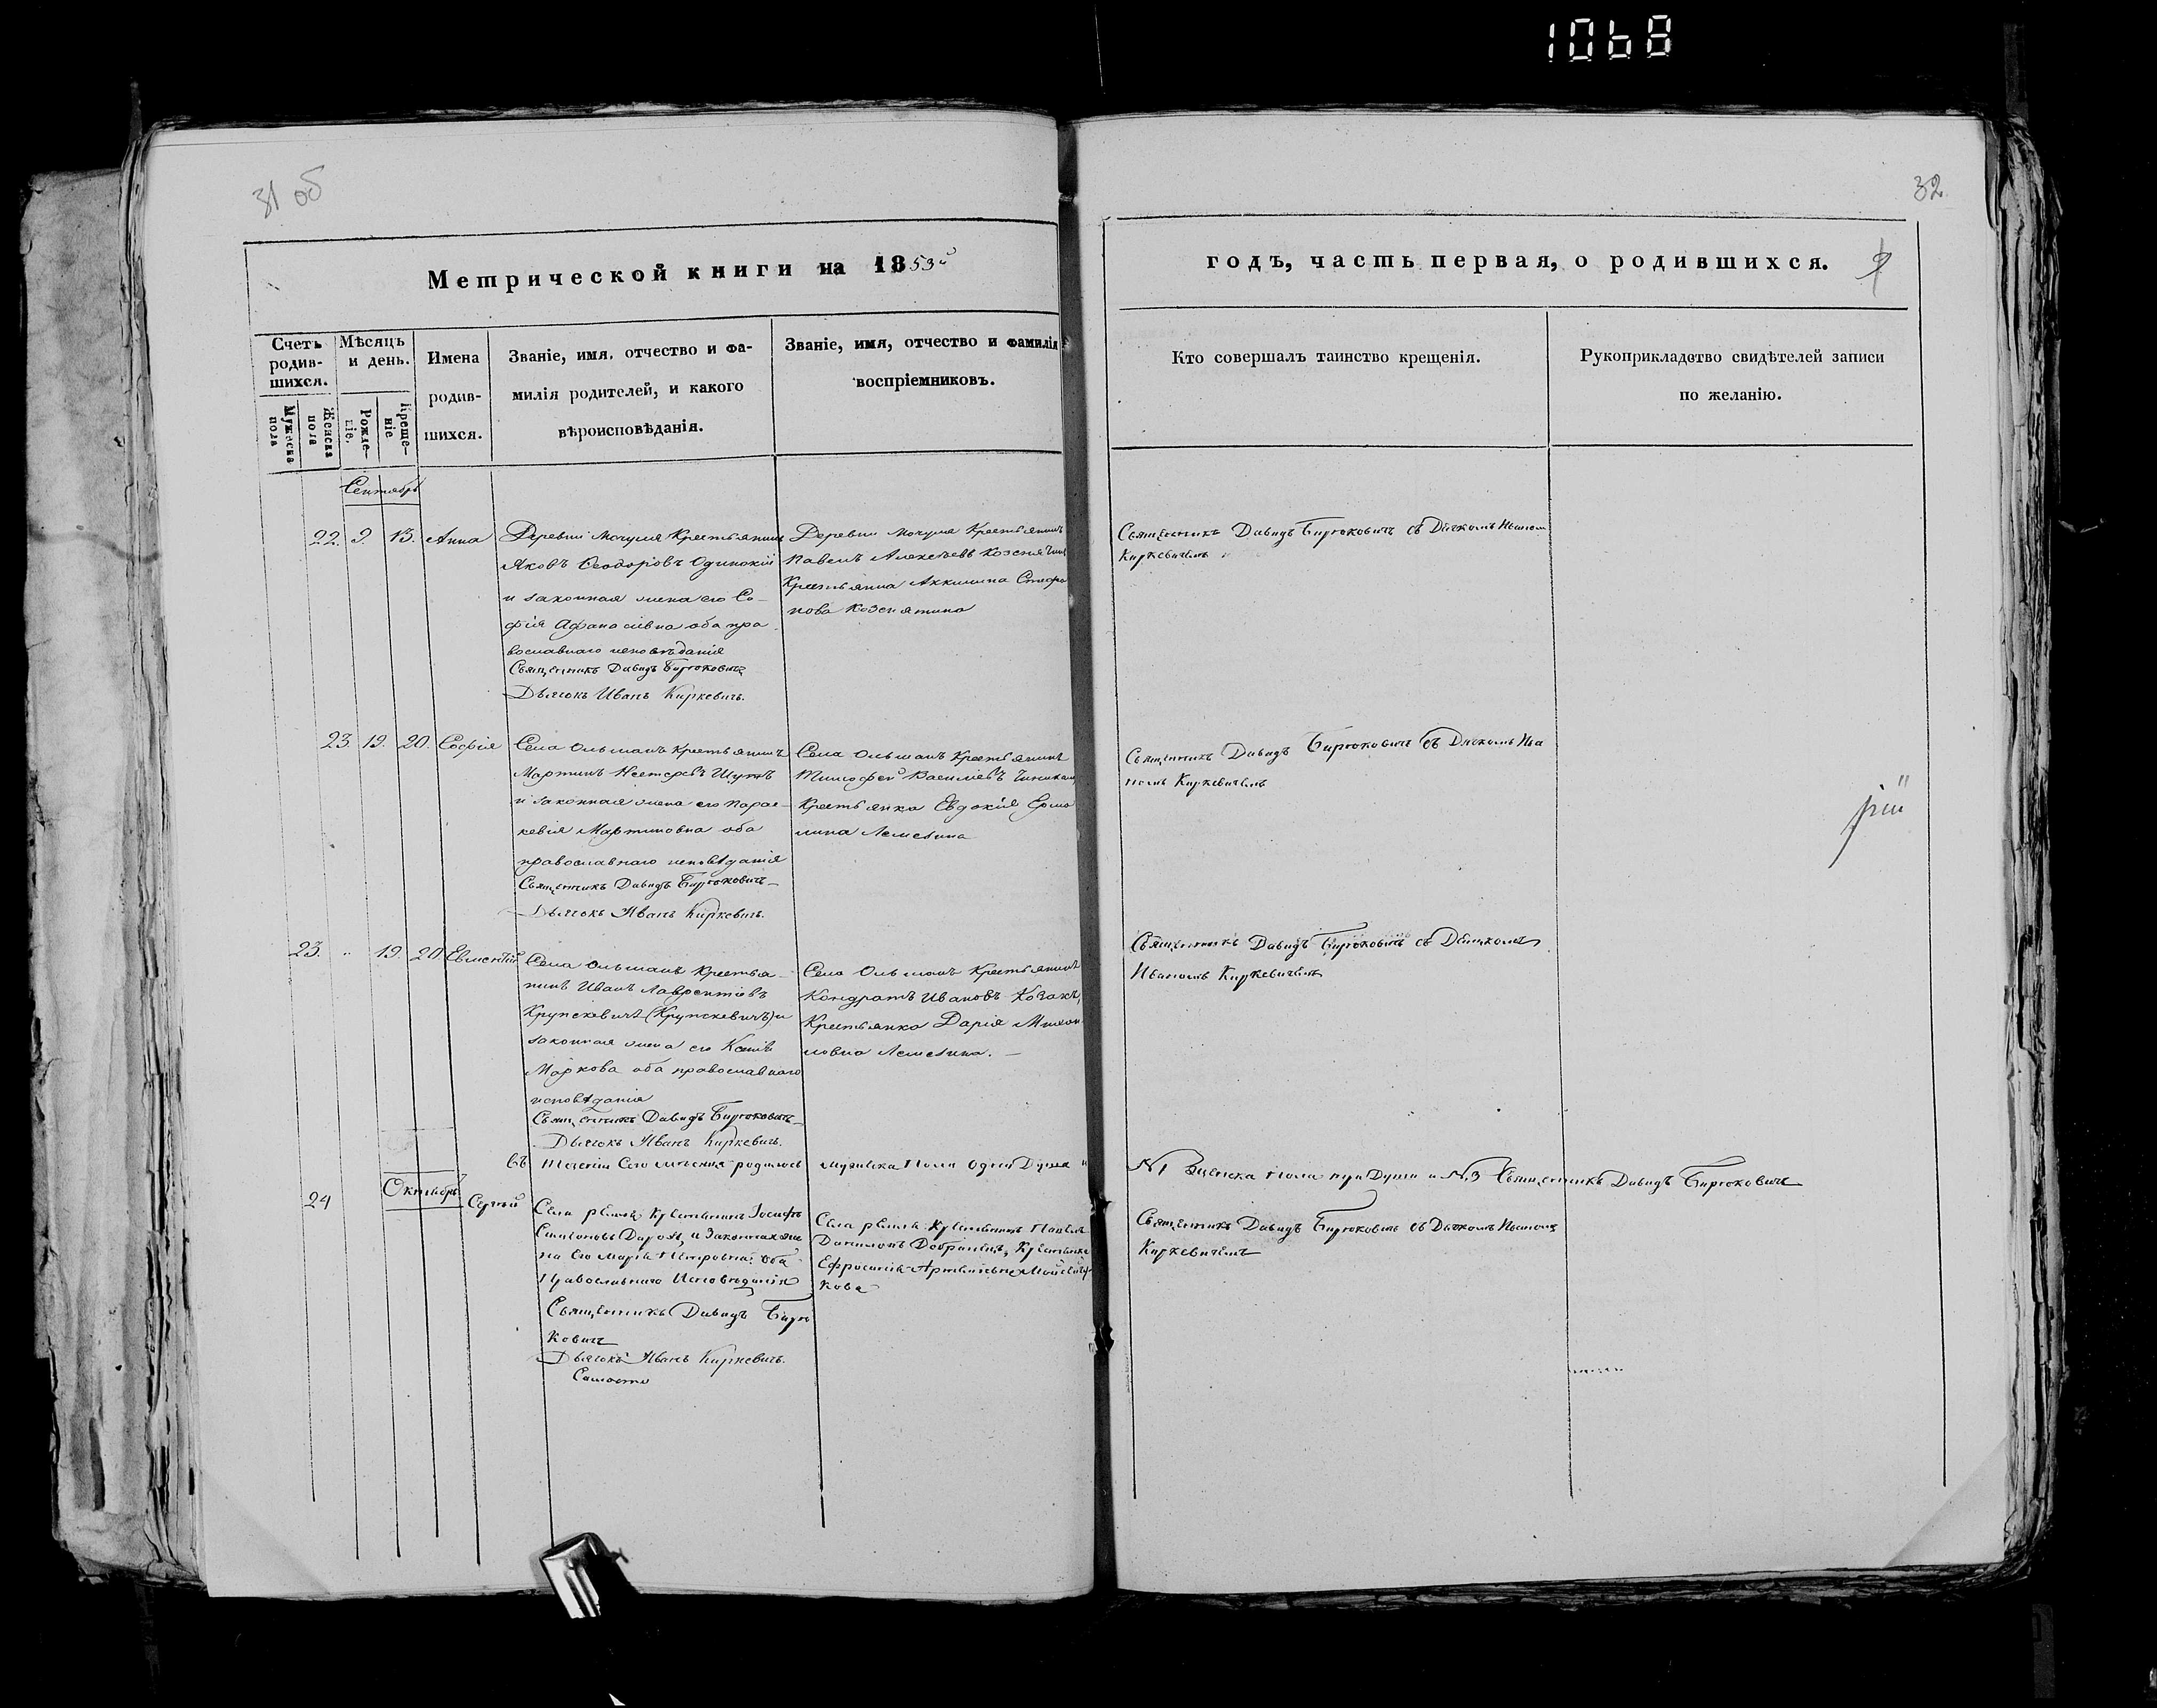 1068
31 об
32
Метрической книги на 1853й
годъ, часть первая, о родившихся.
Счетъ родившихся.
Мужеска пола
Женска пола
Мѣсяцъ и день.
Рожденіе.
Крещеніе
Имена родившихся.
Званіе, имя, отчество и фамилія родителей, и какого вѣроисповѣданія.
Званіе, имя, отчество и фамилія воспріемниковъ.
Кто совершалъ таинство крещенія.
Рукоприкладство свидѣтелей записи по желанію.
Сентябрь
22. 9. 13. Анна
Деревни Мочуля Крестьянинъ
Яковъ Ѳеодоровъ Одинокій
и законная жена его Со-
фія Афанасіевна оба пра
вославнаго исповѣданія
Священникъ Давидъ Бирюковичъ
Дьячокъ Иванъ Киркевичъ.
Деревни Мочуля Крестьянинъ
Павелъ Алексѣевъ
Крестьянка Стефа
нова
Священникъ Давидъ Бирюковичъ съ Дячкомъ Иваномъ
Киркевичемъ
23. 19. 20. Софія
Села Ольманъ Крестьянинъ
Мартинъ Нестеровъ
и законная жена его Парас-
кевія Мартиновна оба
православнаго исповѣданія
Священникъ Давидъ Бирюковичъ
Дьячокъ Иванъ Киркевичъ.
Села Ольманъ Крестьянинъ
Тимофей Василіевъ
Крестьянка Евдокія Ермо
лина
Священникъ Давидъ Бирюковичъ съ Дячкомъ Ива
номъ Киркевичемъ
23. " 19. 20 Евменій
Села Ольманъ Крестья-
нинъ Иванъ Лаврентіевъ
Крупскевичъ (Крупскевичъ) и
законная жена его Ксенія
Маркова оба православнаго
исповѣданія
Священникъ Давидъ Бирюковичъ
Дьячокъ Иванъ Киркевичъ.
Села Ольманъ Крестьянинъ
Кондратъ Ивановъ Козакъ,
Крестьянка Дарія Михай
ловна
Священникъ Давидъ Бирюковичъ съ Дячкомъ
Иваномъ Киркевичемъ
въ теченіи сего мѣсяца родилось мужеска пола одна душа и
№1 женска пола три души и №3 Священникъ Давидъ Бирюковичъ
Октябрь
24 Сергій
Села Крестьянинъ Іосифъ
Симеоновъ и законная же
на его Марія Петровна оба
Православнаго Исповѣданія
Священникъ Давидъ Бирю
ковичъ
Дьячокъ Иванъ Киркевичъ.
Села Крестьянинъ Павелъ
Даниловъ Крестьянка
Ефросинія
кова
Священникъ Давидъ Бирюковичъ съ Дячкомъ Иваномъ
Киркевичемъ